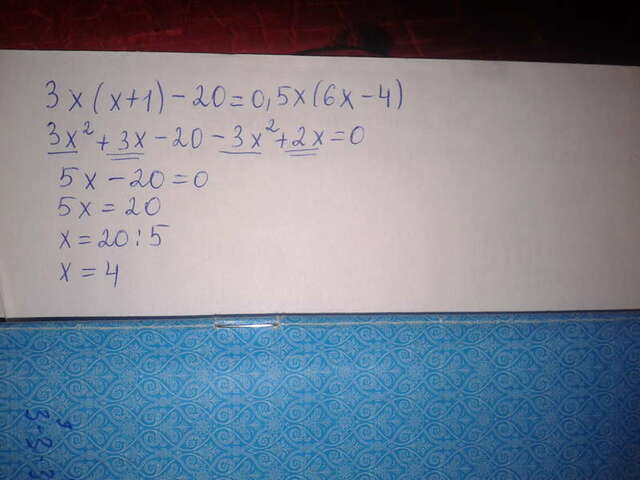 3x(x+1)-20=0,5x(6x-4)
3x²+3x-20-3x²+2x=0
5x-20=0
5x=20
x=20:5
x=4